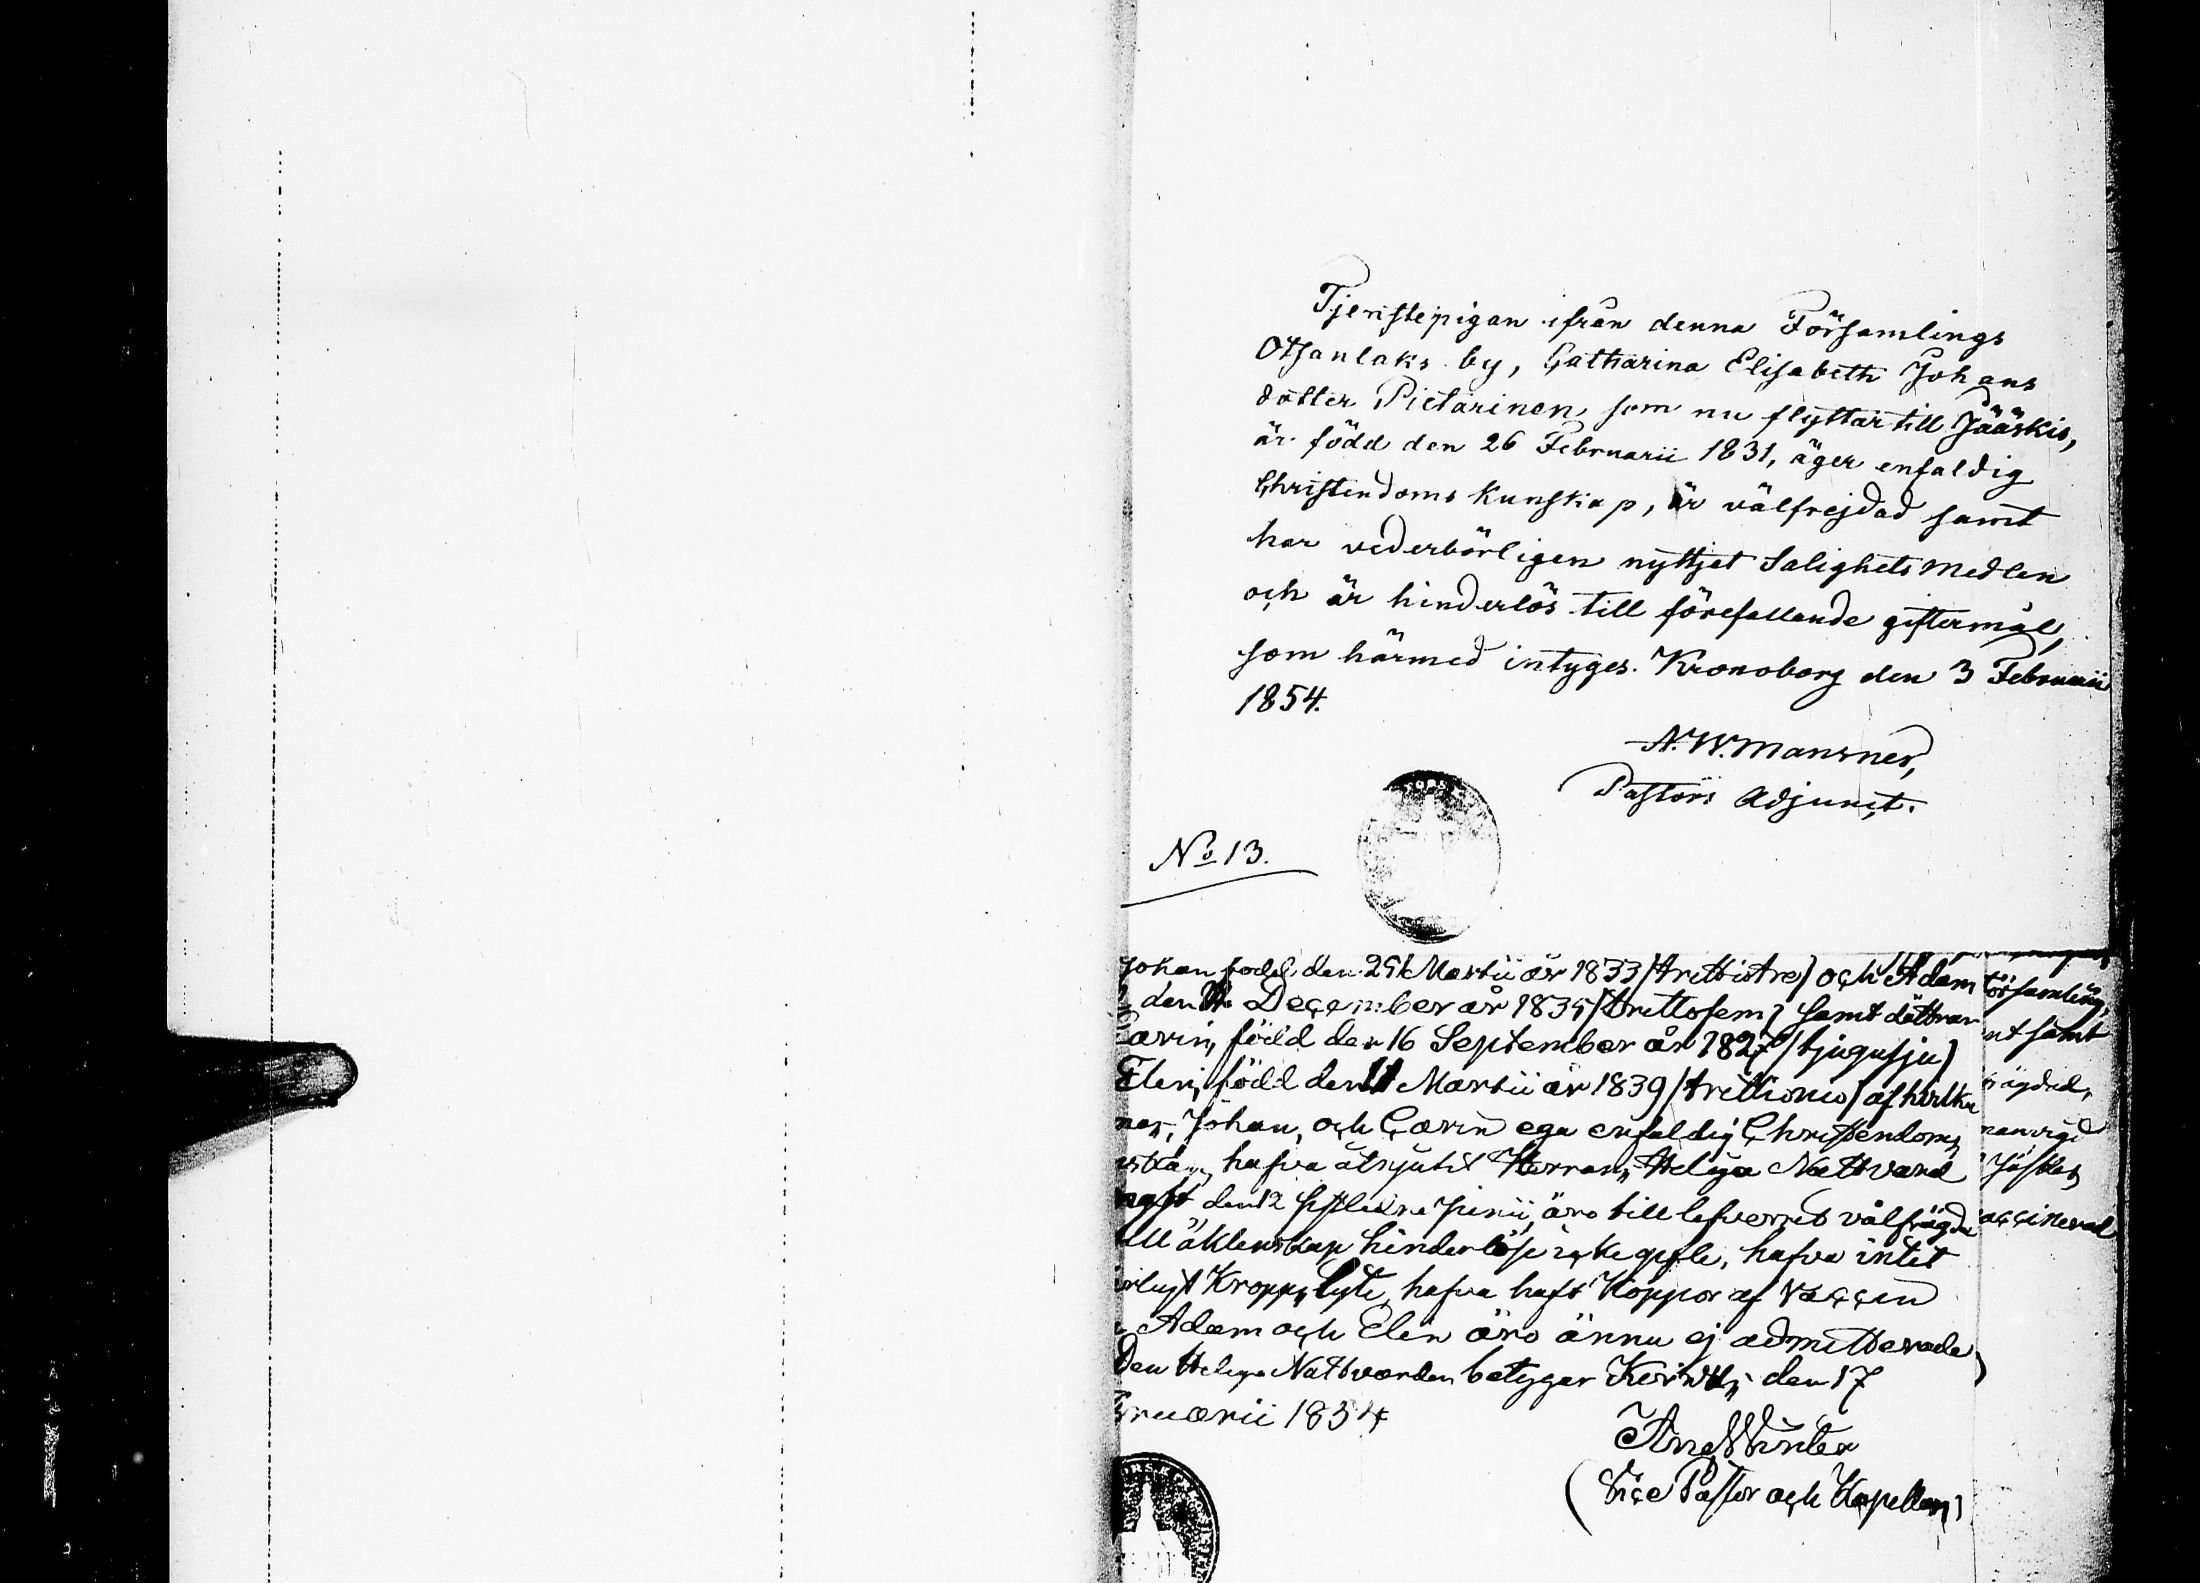 Tjenstepigan ifrån denna Församlings
Otsanlaks by, Catharina Elisabeth Johans
dotter Pietarinen, som nu flyttar till Jääskis,
är född den 26 Februarii 1831, äger enfaldig
Christendoms Kunskap, är välfrejdad samt
har vederbörligen nyttjat Salighets medlen
och är hinderlös till förefallande giftermål,
som härmed intyges. Kronoborg den 3 Februarii
1854.
A. W. Mansner,
Pastors Adjunct.
No 13.
Johan född den 29 Martii år 1833 (trettiotre) och Adam
den December år 1835 (trettofem) samt döttrar
Carin, född den 16 September år 1827 (tjugusju)
Elin, född den 11 Martii år 1839 (trettionio) af hvilka
Johan, och Carin ega enfaldig Christendoms
hafva åtnjutit Herrans Heliga Nattvard
den 12 sistledne Junii, äro till lefvernet välfrägda
äktenskap hinderlöse icke gifte, hafva intet
Kropps lyte, hafva haft Koppor af Vaccin
Adam och Elin äro ännu ej admitterade
Den Heliga Nattvarden betygar den 17
ruarii 1854
Vice Pastor och Kapellan
församling,
nt samt
frägdad,
accinerad